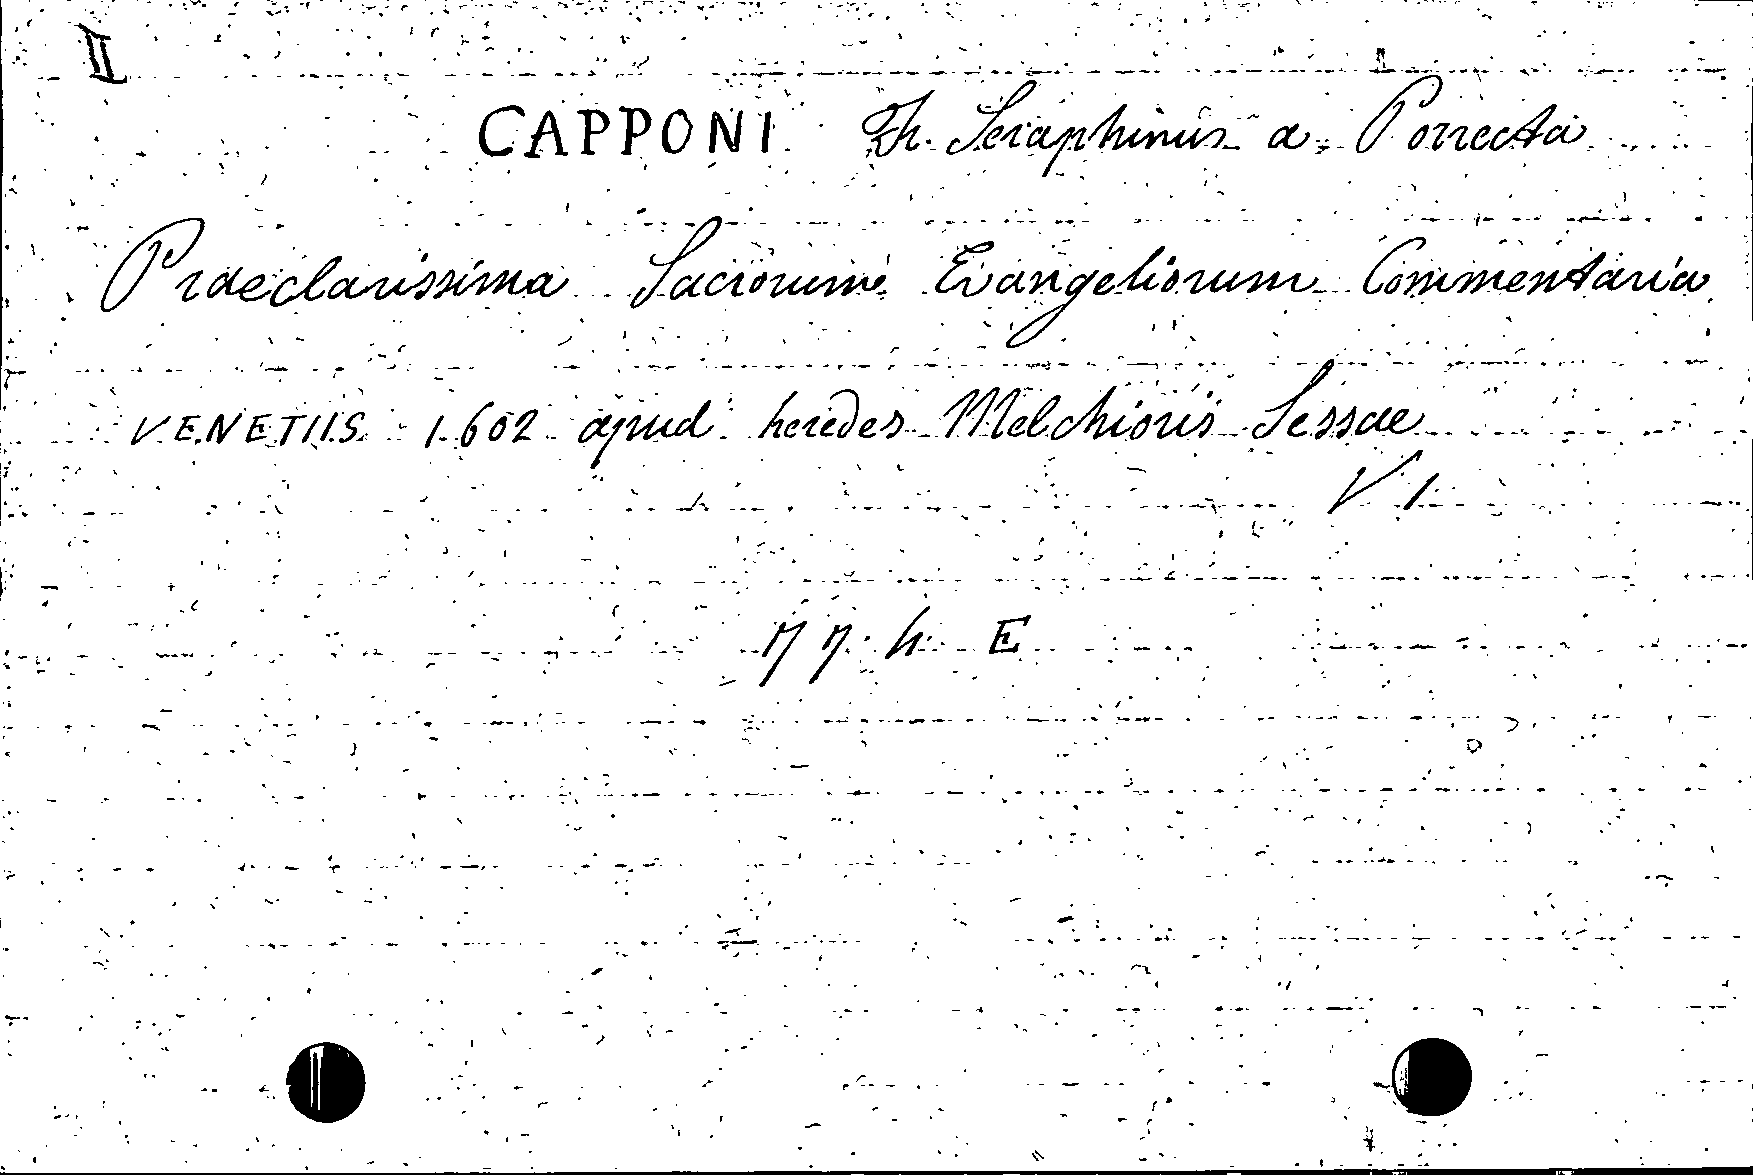 II
CAPPONI Fr. Seraphinus a Porrecta
Praeclarissima Sacrorum Evangeliorum Commentaria
VENETIIS 1602 apud heredes Melchioris Sessae
V 1
h E